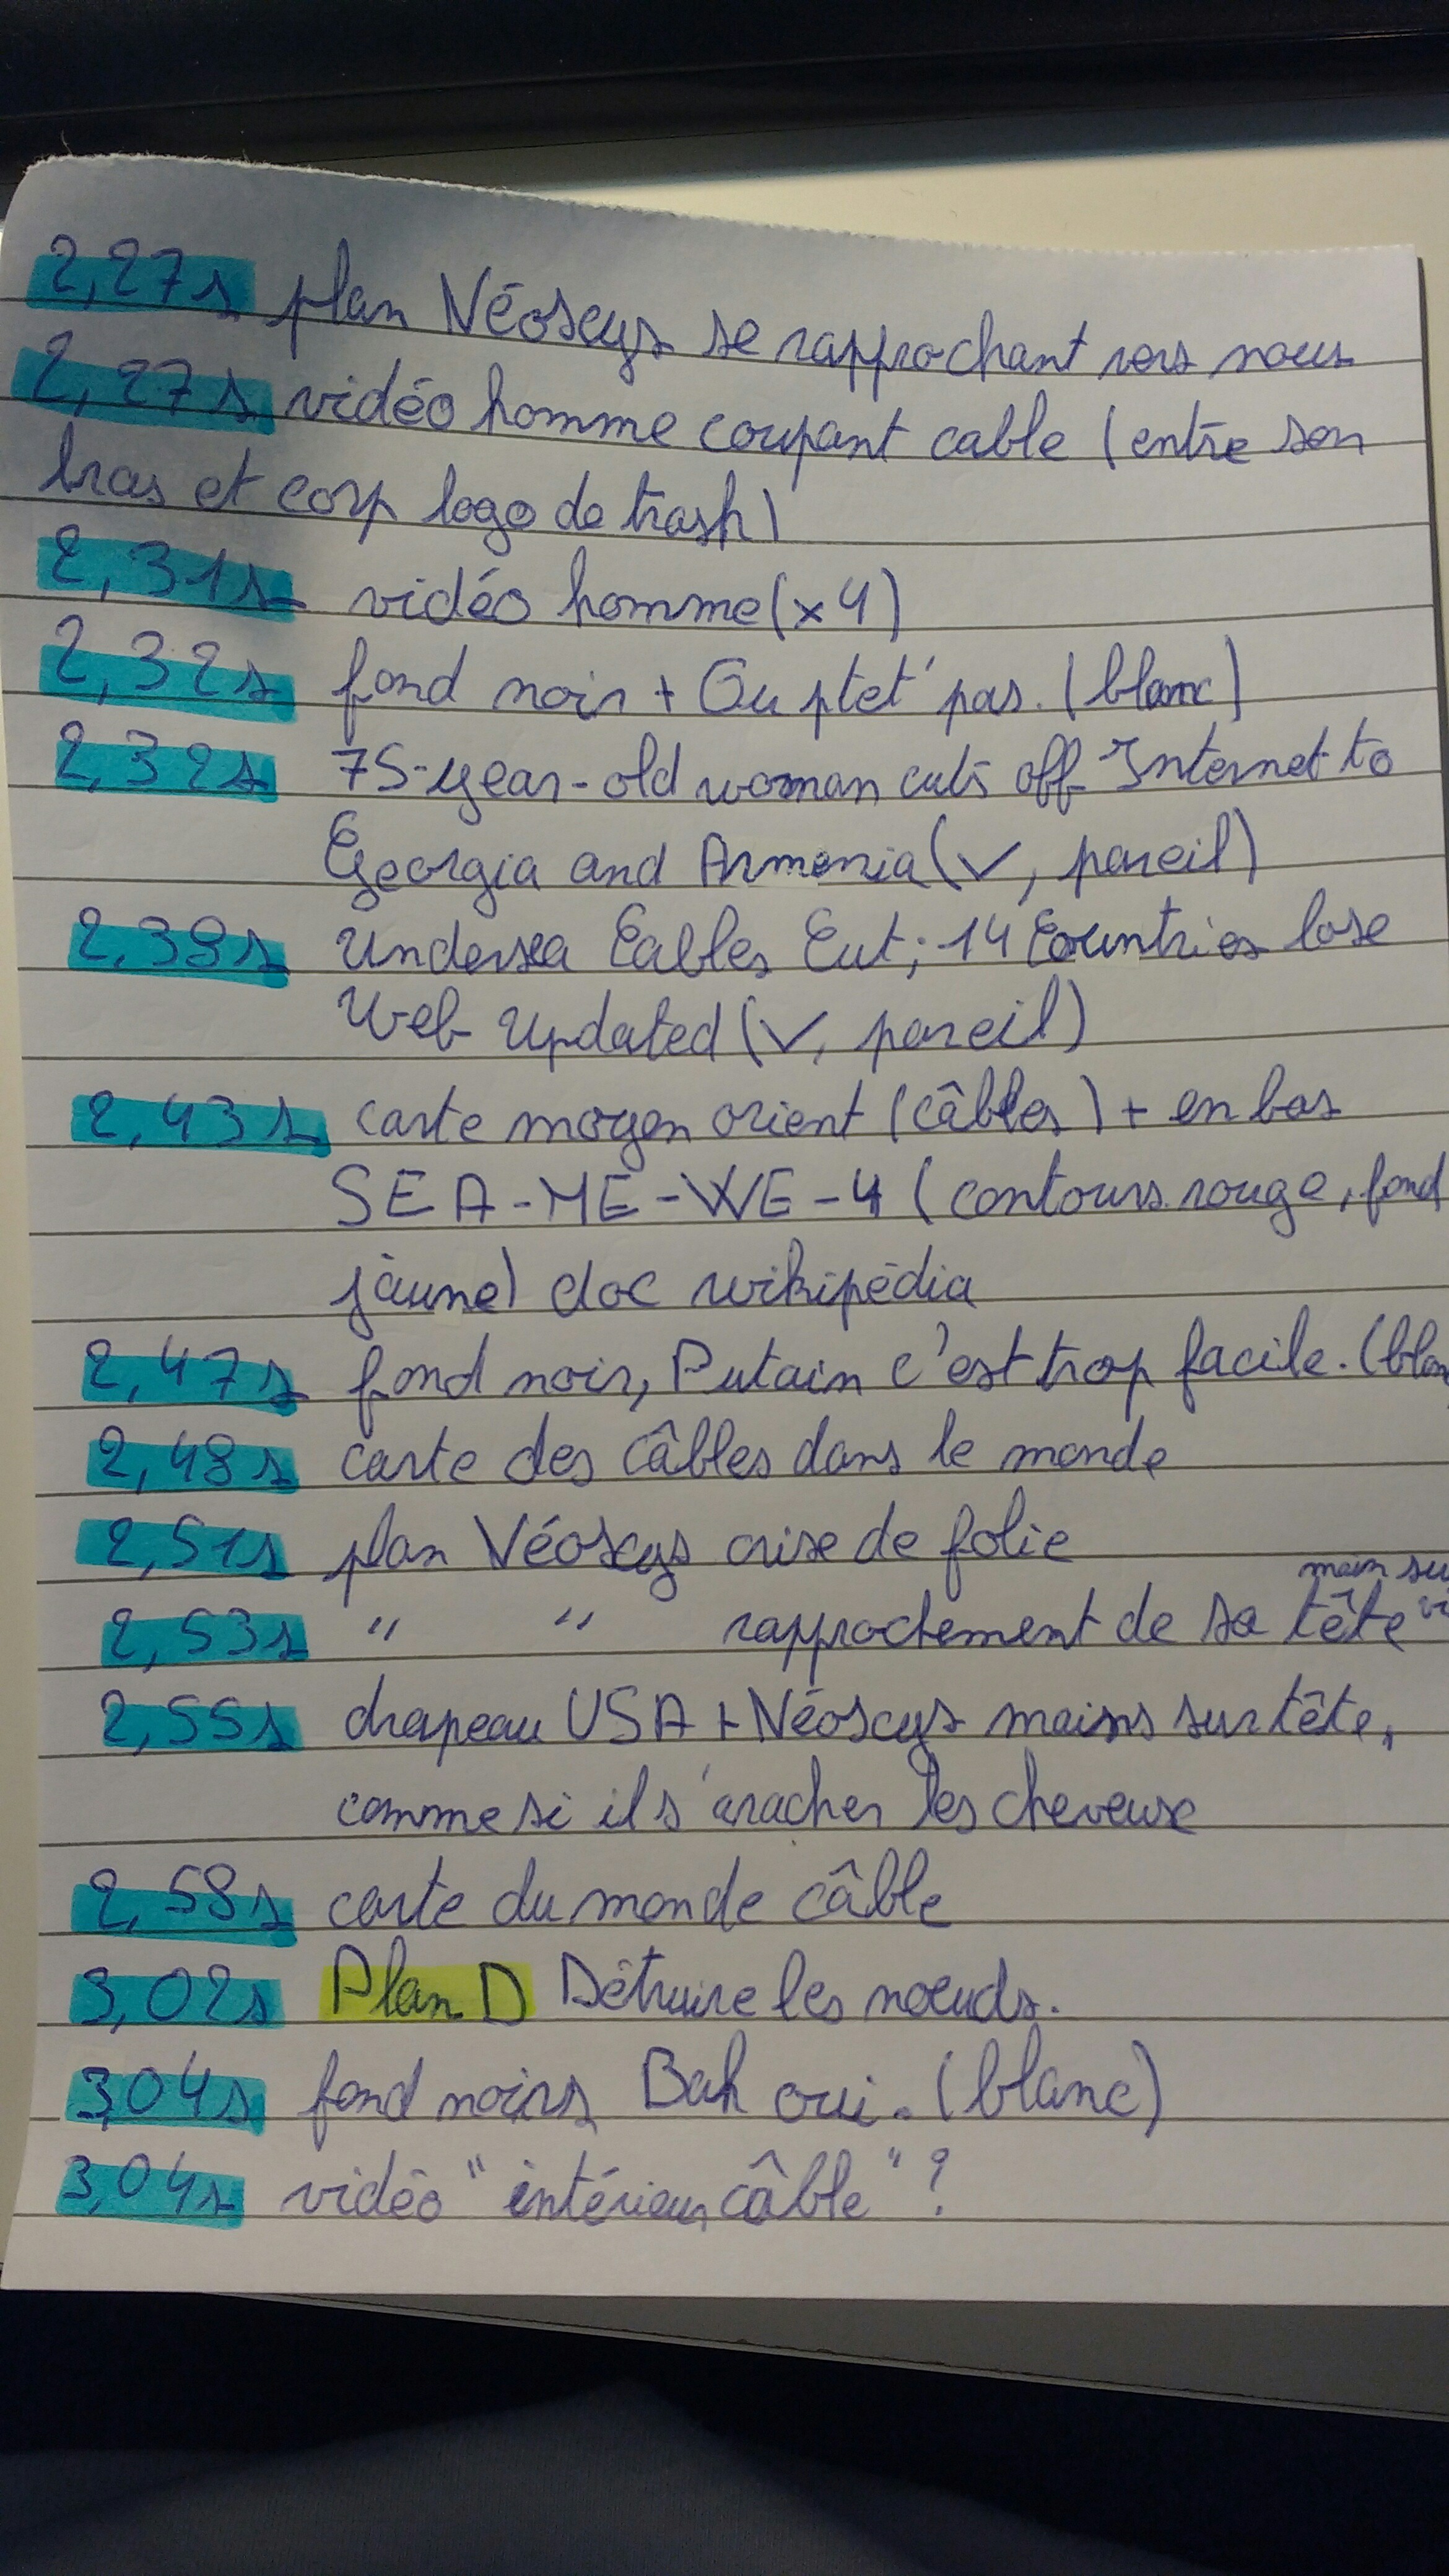 2,27s plan Néoscys se rapprochant vers nous
2,27s vidéo homme coupant cable (entre son
bras et corp logo de trash)
2,31s vidéo homme (x4)
2,32s fond noir + Ou ptet' pas. (blanc)
2,32s 75-year-old woman cuts off Internet to
Georgia and Armenia (✓, pareil)
2,38s Undersea Cables Cut; 14 Countries lose
Web Updated (✓, pareil)
2,43s carte moyen orient (câbles) + en bas
SEA-ME-WE-4 (contours rouge, fond
jaune) doc wikipédia
2,47s fond noir, Putain c'est trop facile. (blan
2,48s carte des câbles dans le monde
2,51s plan Néoscys crise de folie
main su
2,53s " " rapprochement de sa tête vi
2,55s drapeau USA + Néoscys mains sur tête,
comme si il s'aracher les cheveuse
2,58s carte du monde câble
3,02s Plan D Détruire les noeuds.
3,04s fond noirs Bah oui. (blanc)
3,04s vidéo "intérieur câble" ?